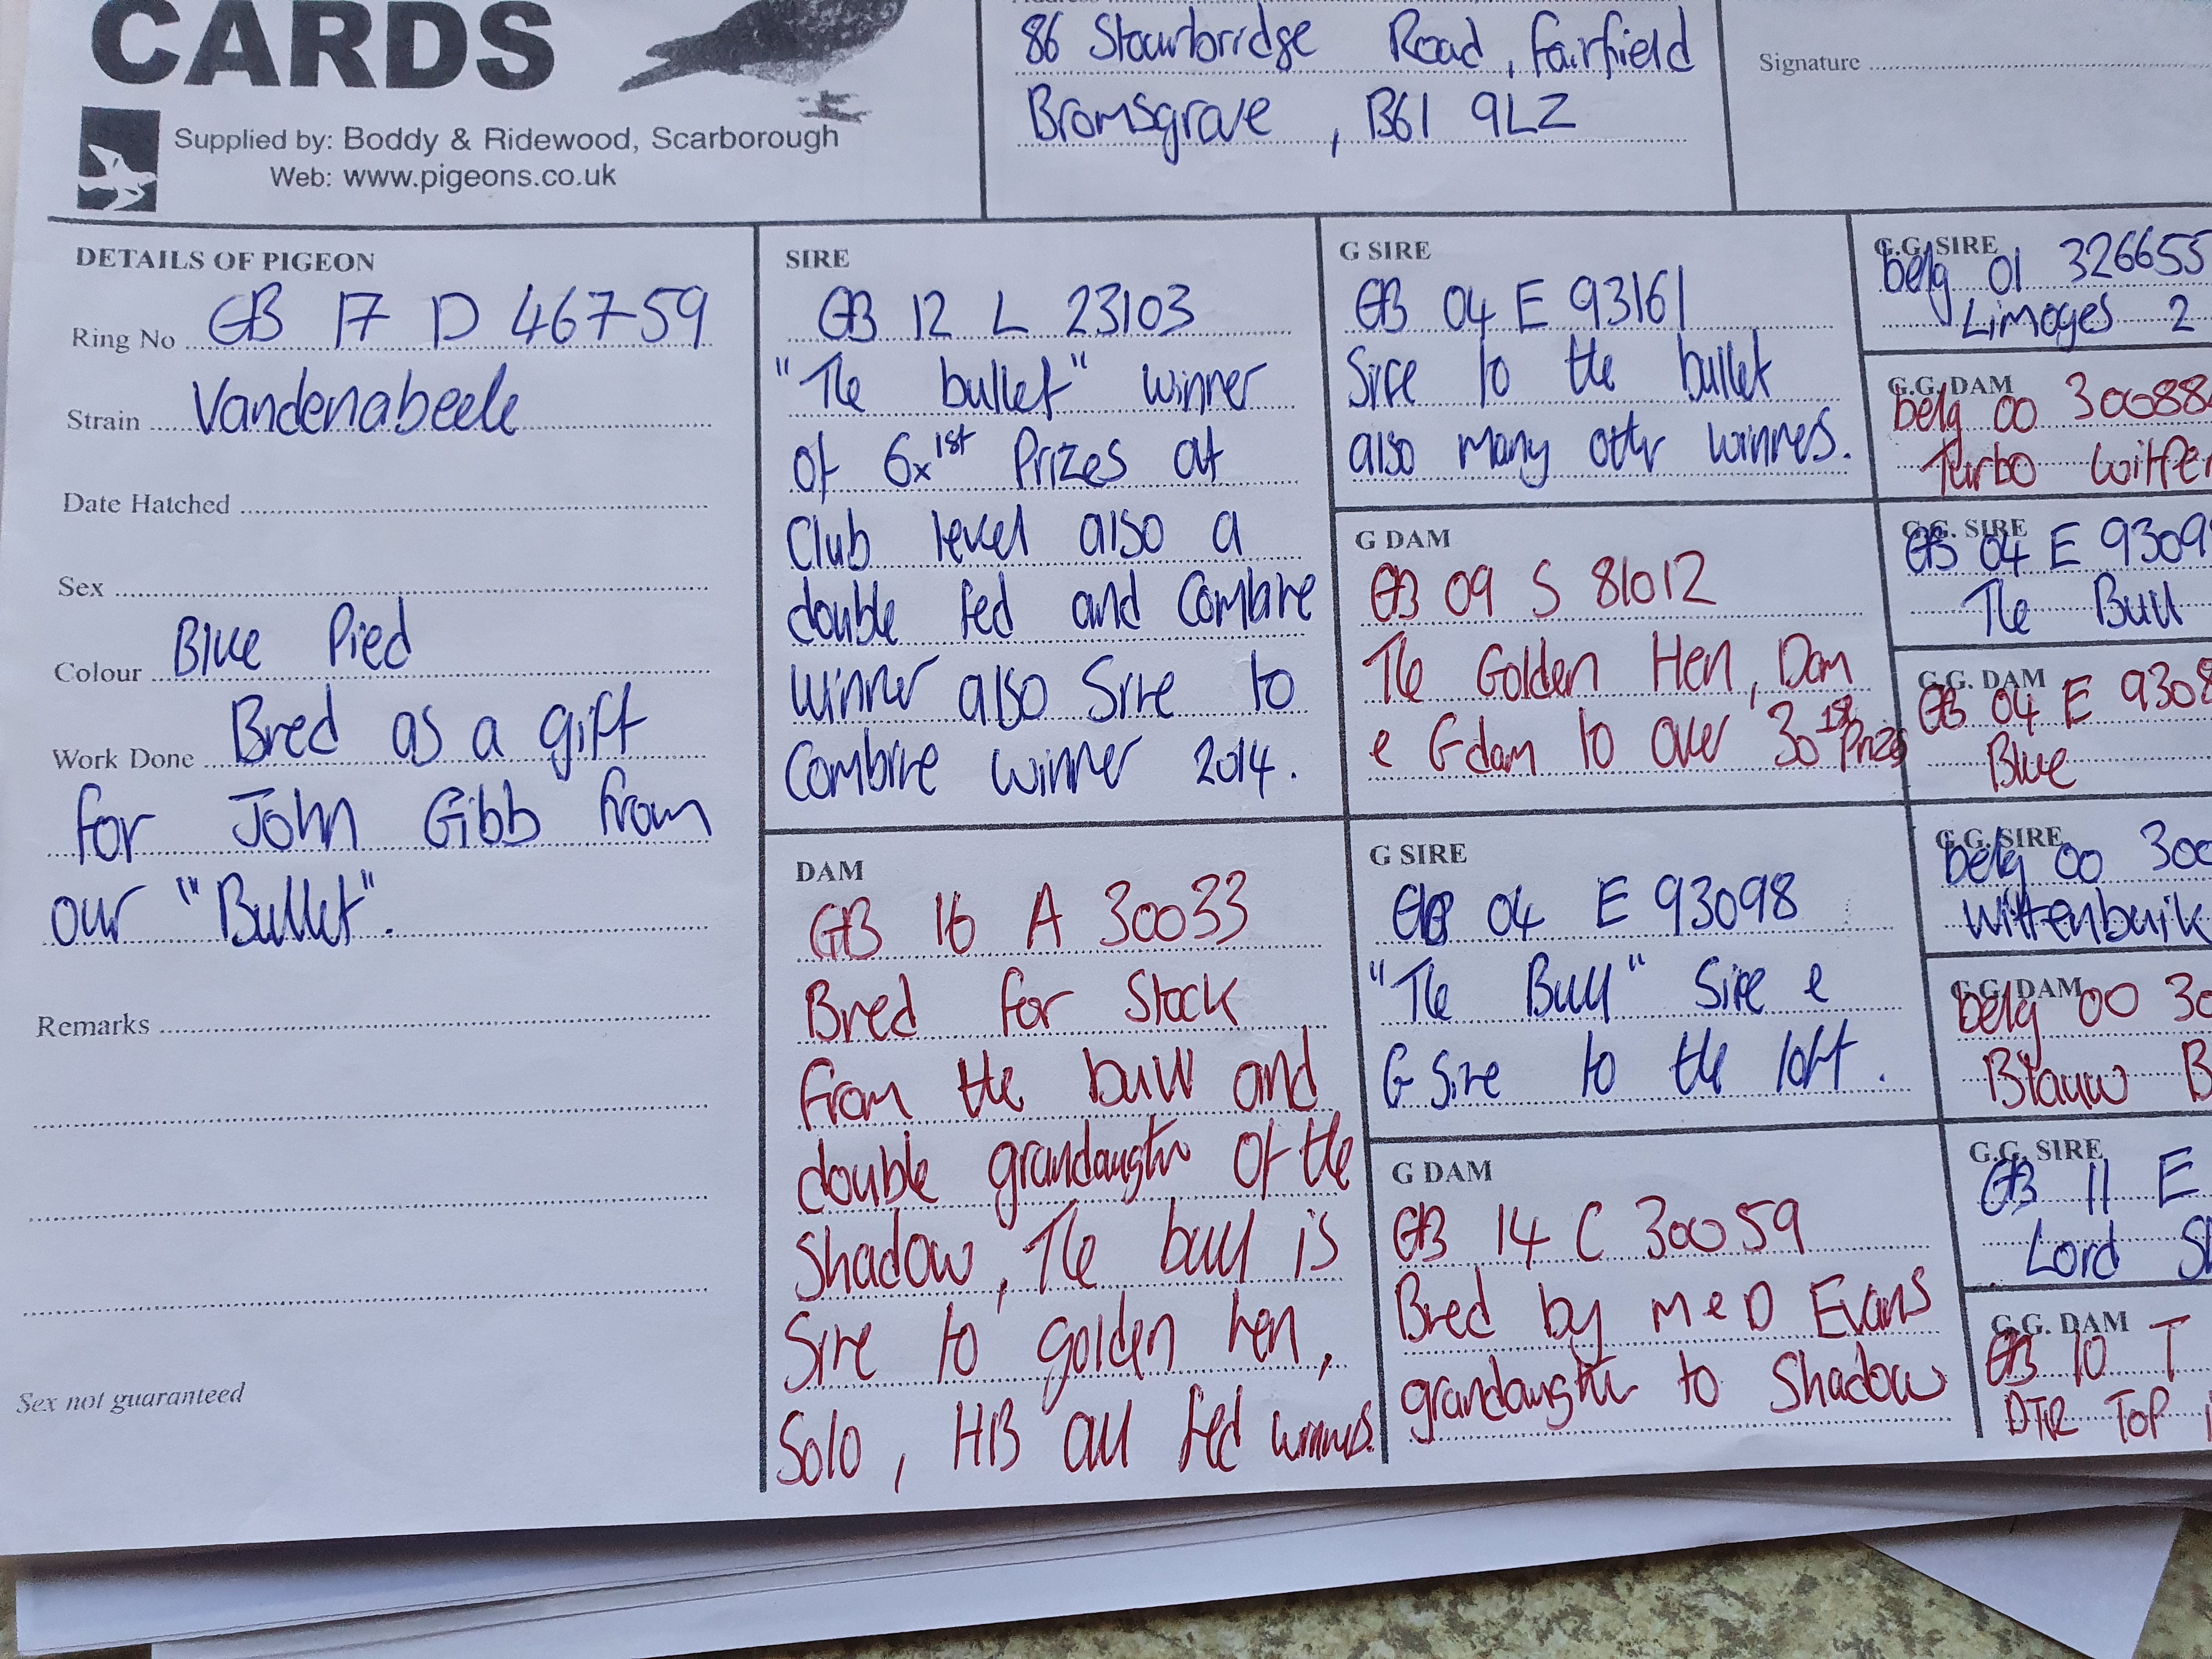 CARDS
Supplied by: Boddy & Ridewood, Scarborough
Web: www.pigeons.co.uk
86 Stourbridge Road, Fairfield
Bromsgrove, B61 9LZ
Signature
DETAILS OF PIGEON
Ring No GB 17 D 46759
Strain Vandenabeele
Date Hatched
Sex
Colour Blue Pied
Work Done Bred as a gift
for John Gibb from
our "Bullet".
Remarks
Sex not guaranteed
SIRE
GB 12 L 23103
"The bullet" winner
of 6x 1st Prizes at
Club level also a
double fed and Combine
winner also Sire to
Combine winner 2014.
DAM
GB 16 A 30033
Bred for Stock
from the bull and
double grandaughter of the
Shadow, The bull is
Sire to golden hen,
Solo, HB all fed winners.
G SIRE
GB 04 E 93161
Sire to the bullet
also many other winners.
G DAM
GB 09 S 81012
The Golden Hen, Dam
e Gdam to over 30 1st Prizes
G SIRE
GB 04 E 93098
"The Bull" Sire e
G Sire to the loft.
G DAM
GB 14 C 30059
Bred by M e D Evans
grandaughter to Shadow
G.G. SIRE
belg 01 326655
Limoges 2
G.G. DAM
belg 00 30088
Turbo
G.G. SIRE
GB 04 E 9309
The Bull
G.G. DAM
GB 04 E 930
Blue
G.G. SIRE
belg 00 300
G.G. DAM
belg 00 30
Blauw B
G.G. SIRE
GB 11 E
Lord
G.G. DAM
GB 10 T
DTR TOP